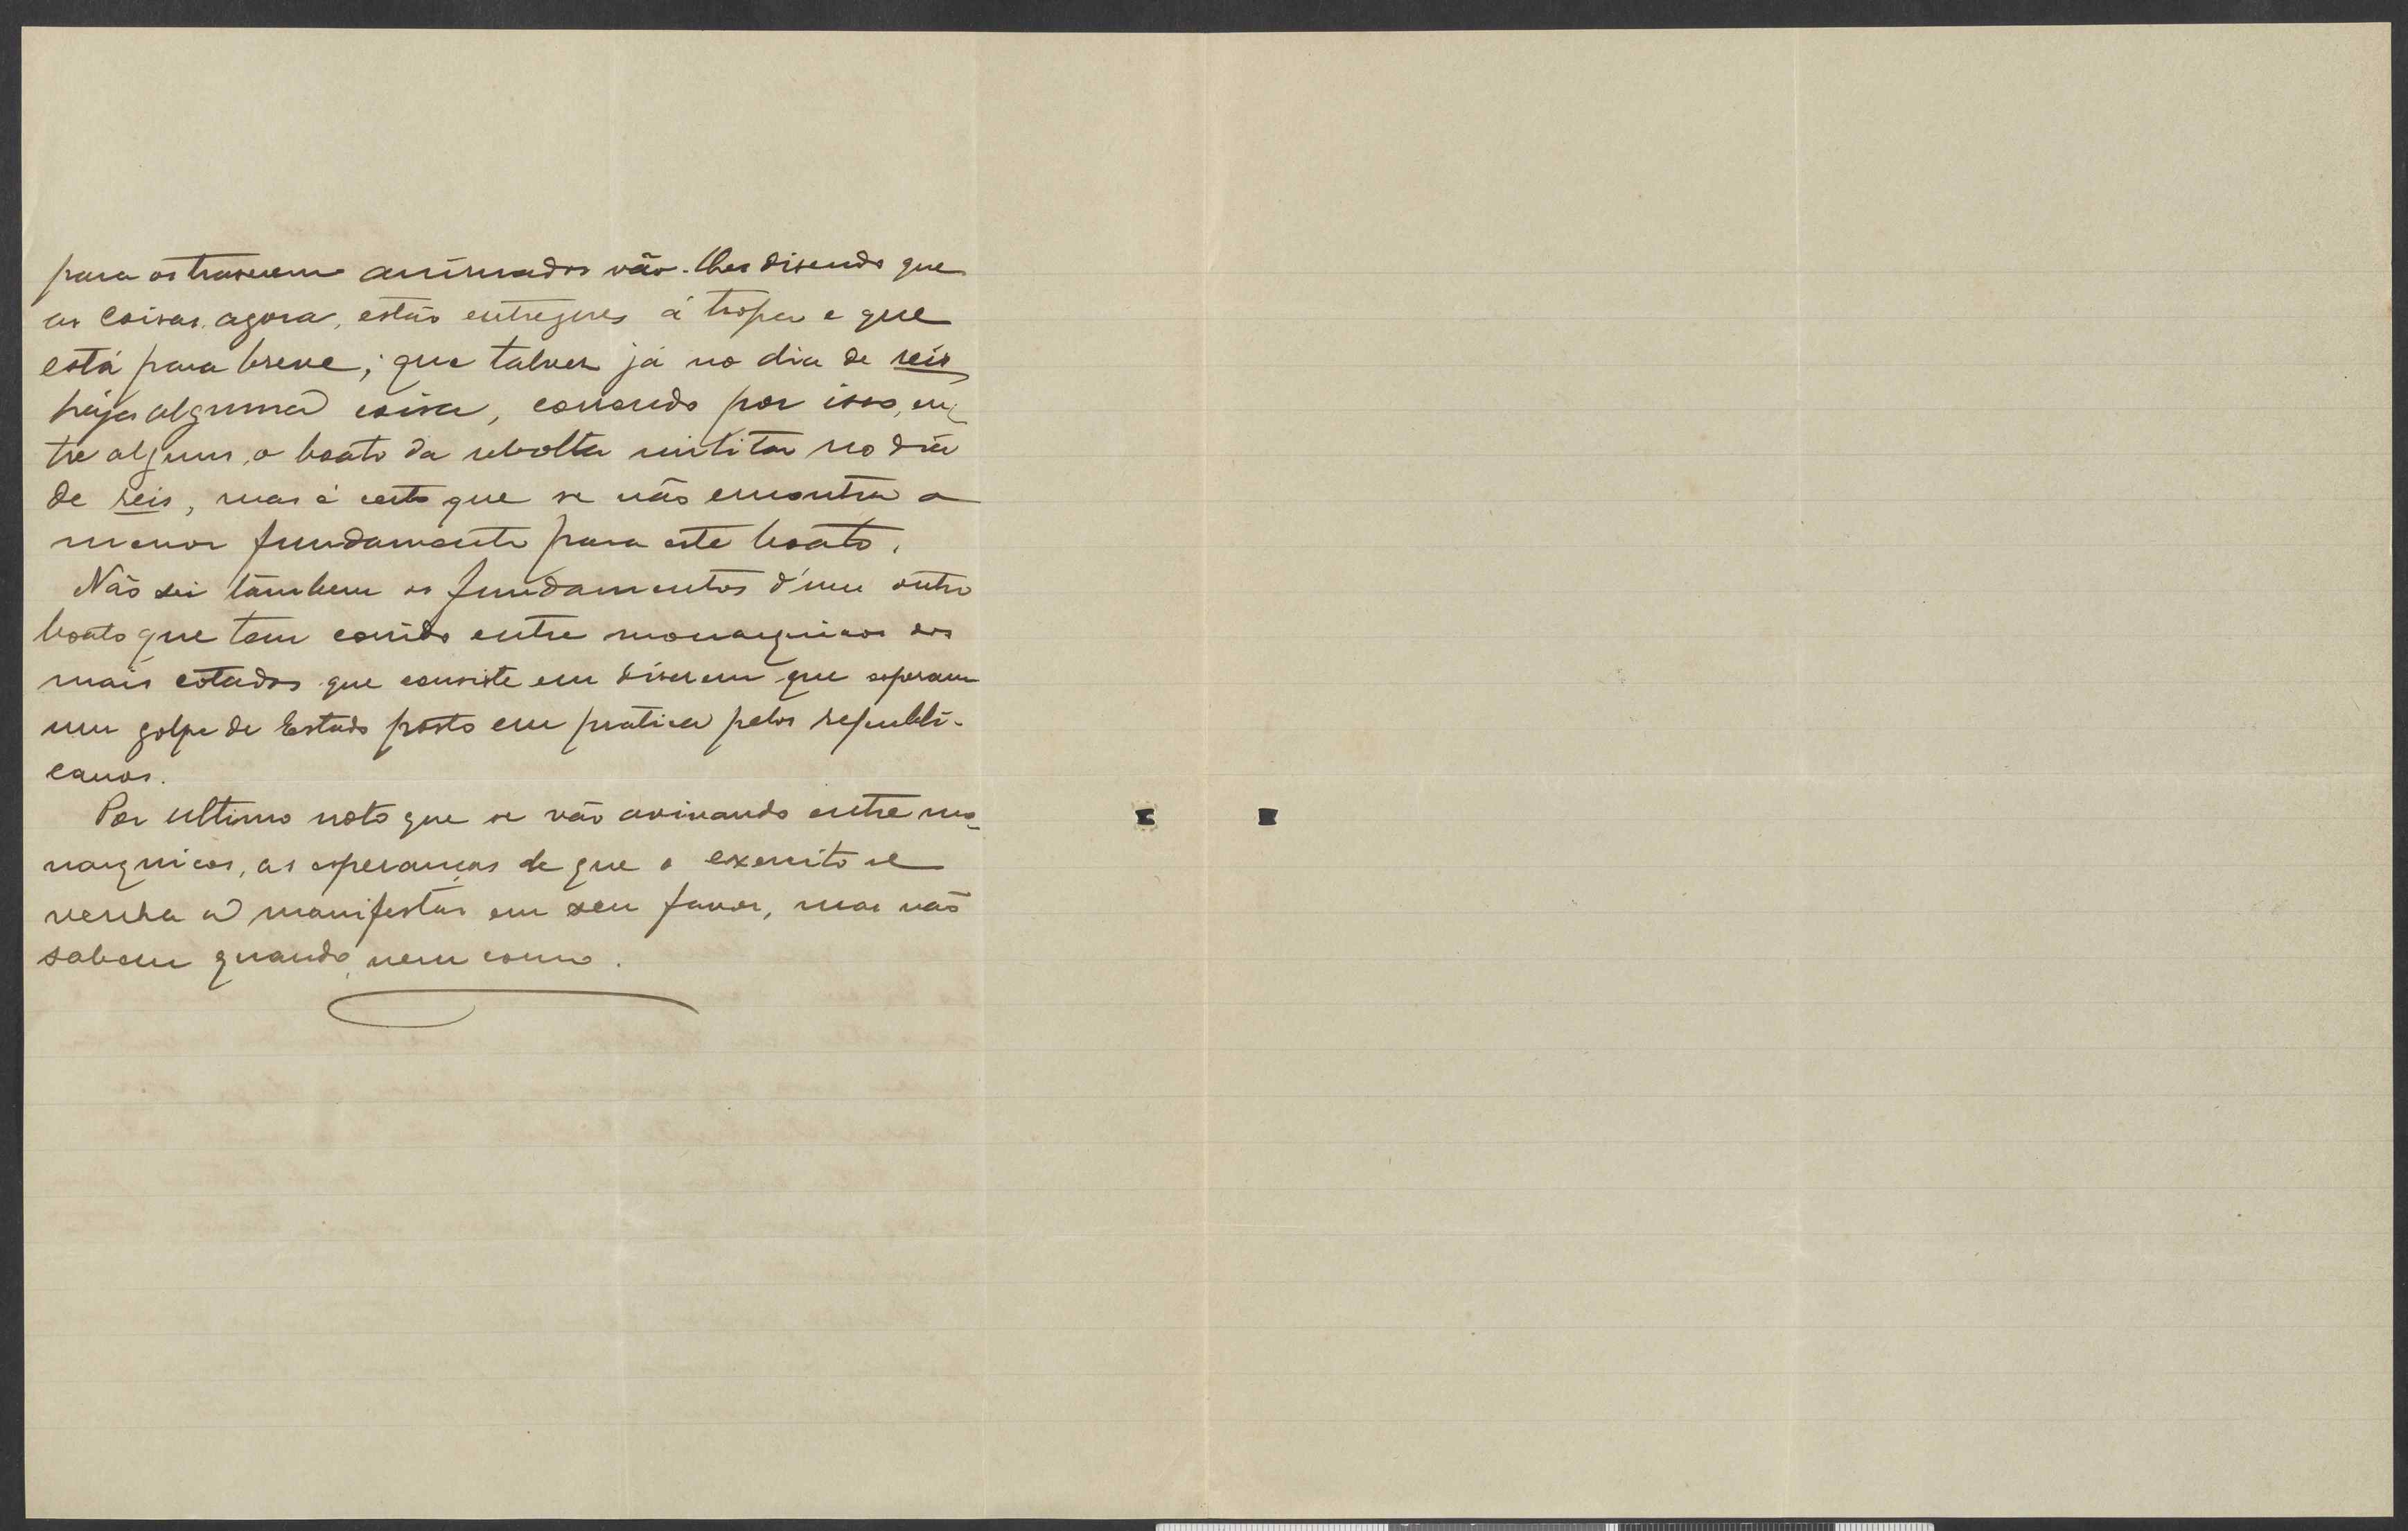 para os traserem animados vão-lhes disendo que
as coisas, agora, estão entregues á tropa e que
está para breve; que talvez já no dia de seis
haja alguma coisa, correndo por isso, en-
tre alguns, o boato da revolta militar no dia
de seis, mas é certo que se não encontra o
menor fundamento para este boato.
Não sei tambem os fundamentos d'um outro
boato que tem corrido entre monarquicos dos
mais cotados que consiste em diserem que esperam
um golpe de Estado posto em pratica pelos republi-
canos.
Por ultimo noto que se vão avivando entre mo-
narquicos, as esperanças de que o exercito se
venha a manifestar em seu favor, mas não
sabem quando, nem como.